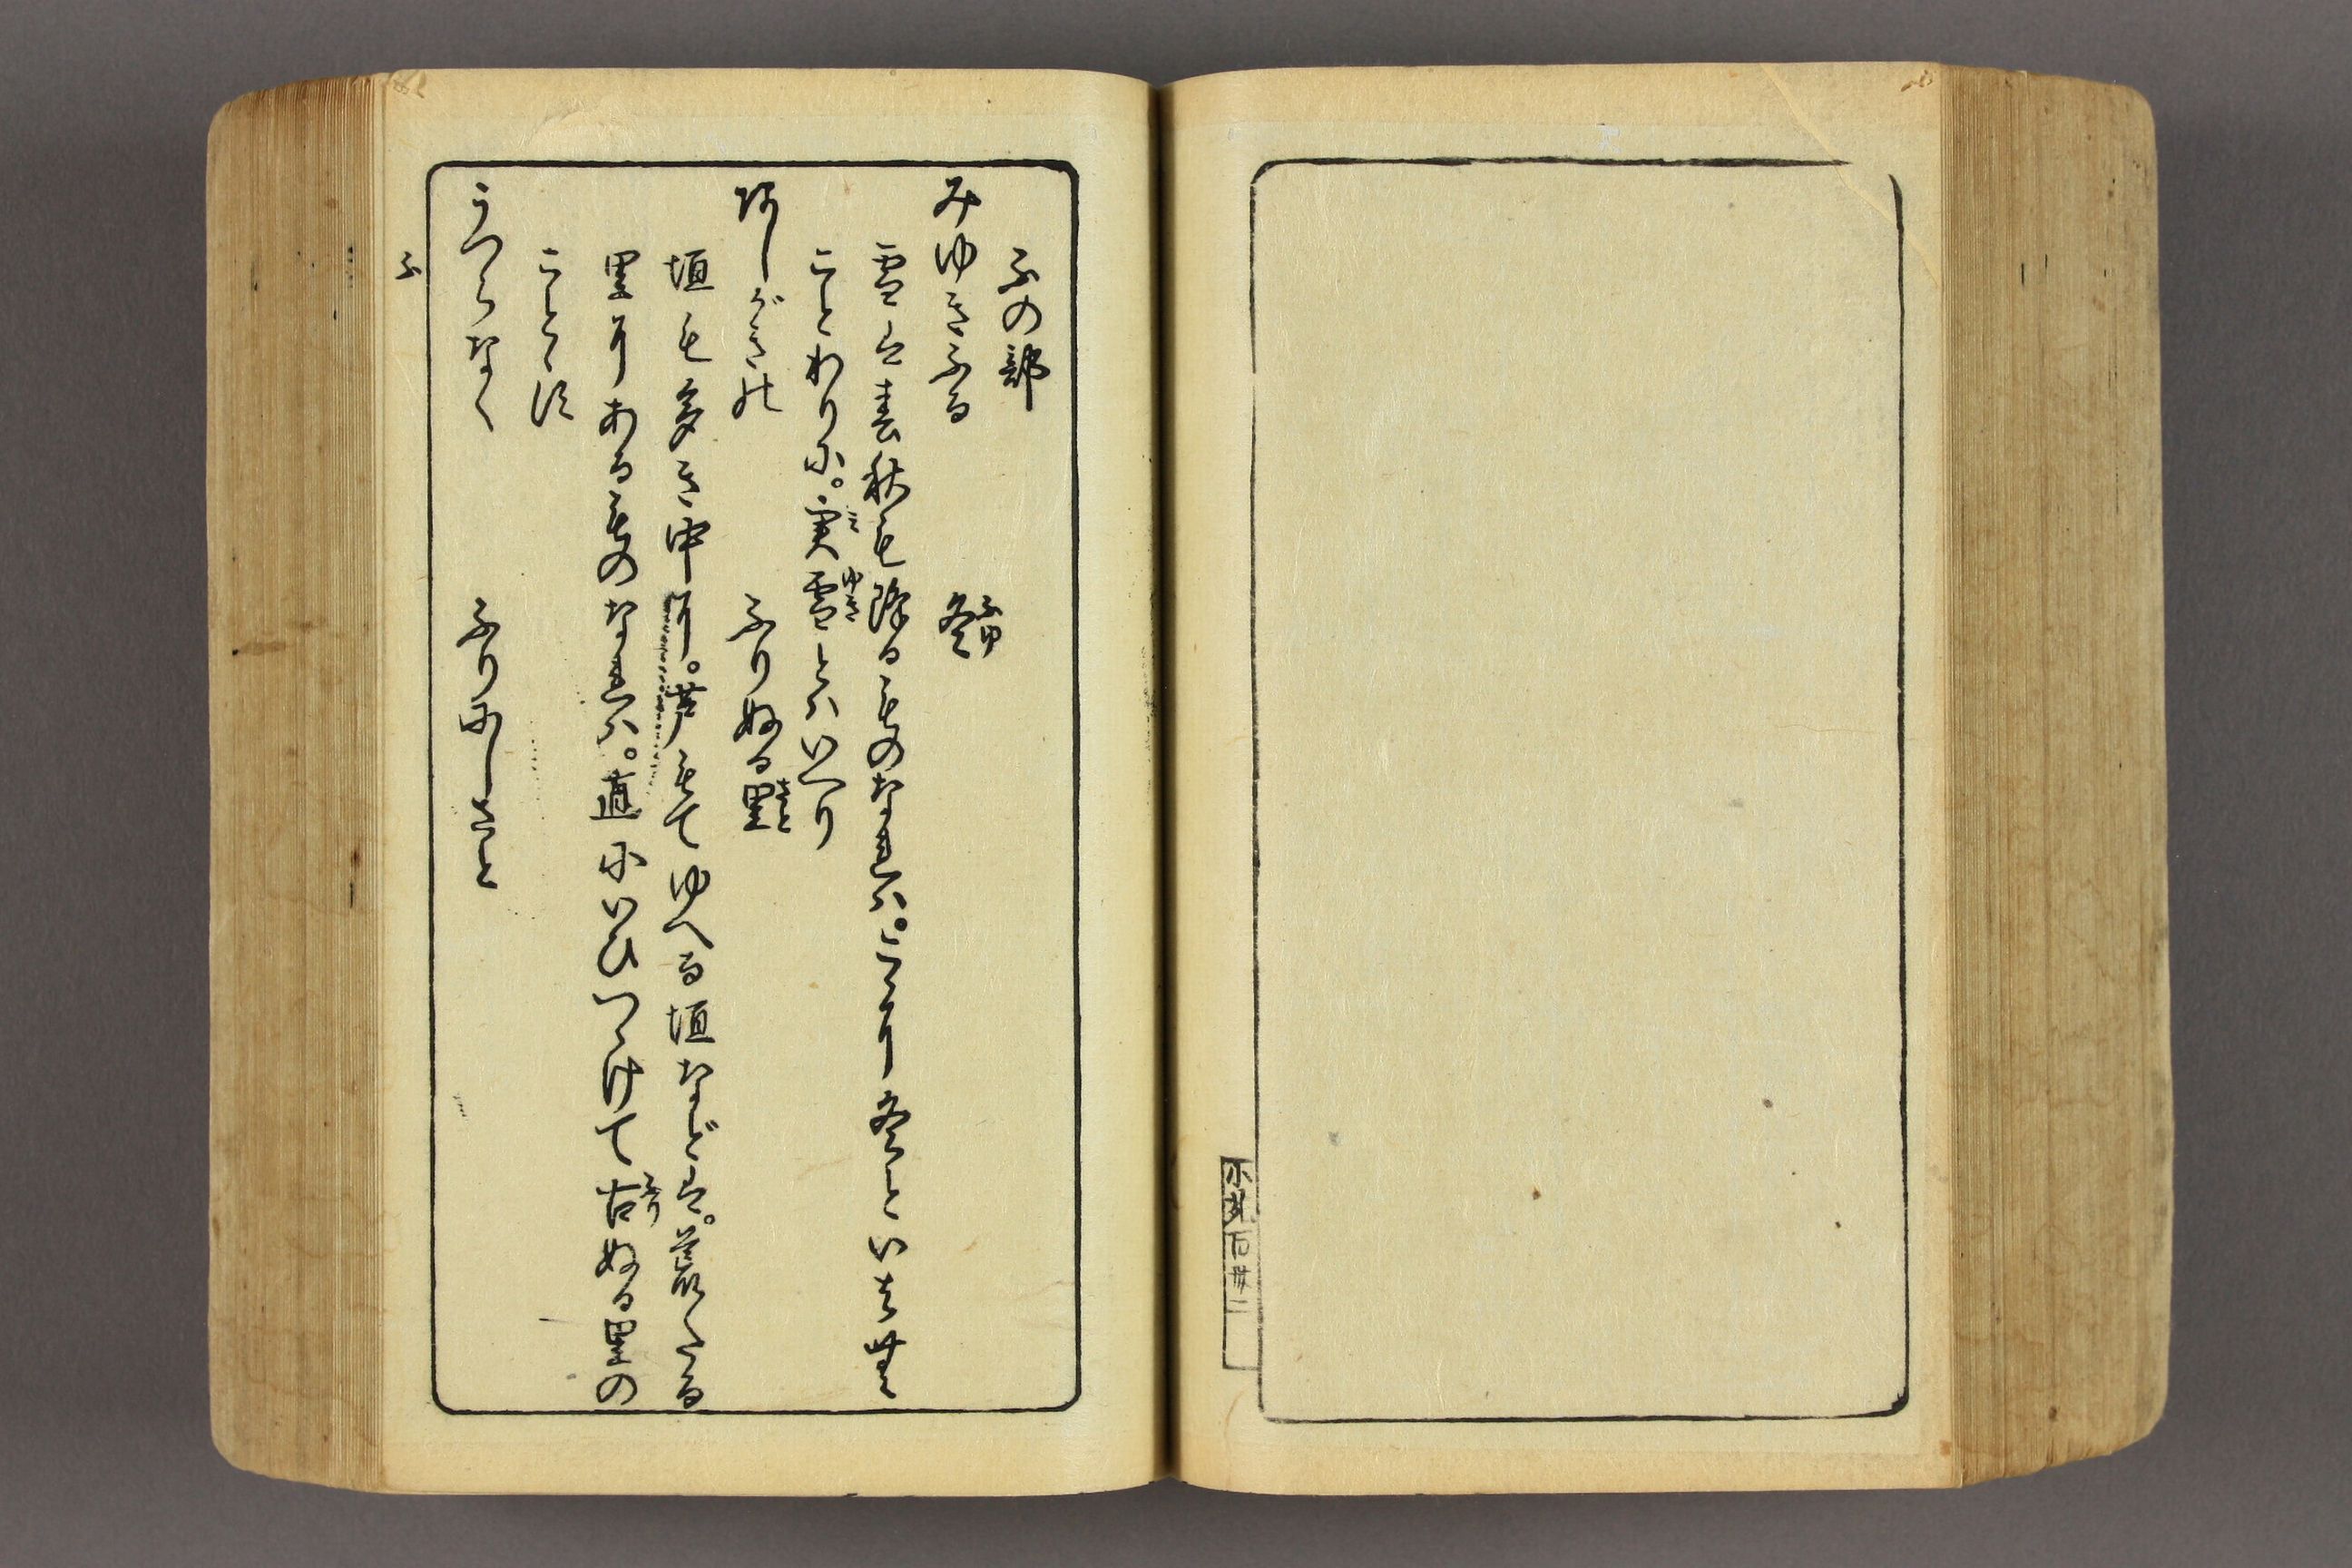 百丗二
ふの部
みゆきふる　冬
ふゆ
雪は春秋も降るものなれハ。こゝに冬といはむ
ことわりに。実雪とハいへり
ミゆき
あしがきの　ふりぬる里
さと
垣も多き中に。芦もてゆへる垣などは。荒たる
里にあるものなれハ。直にいひつゝけて古ぬる里の
ふり
ことゝす
うつらなく　ふりにしさと
ふ